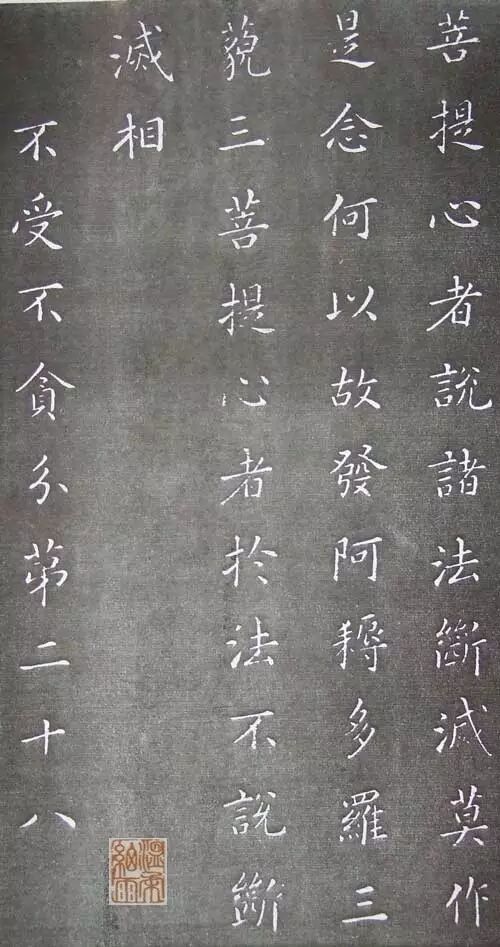 菩提心者說諸法斷滅莫作
是念何以故發阿耨多羅三
藐三菩提心者於法不說斷
滅相
不受不貪分第二十八